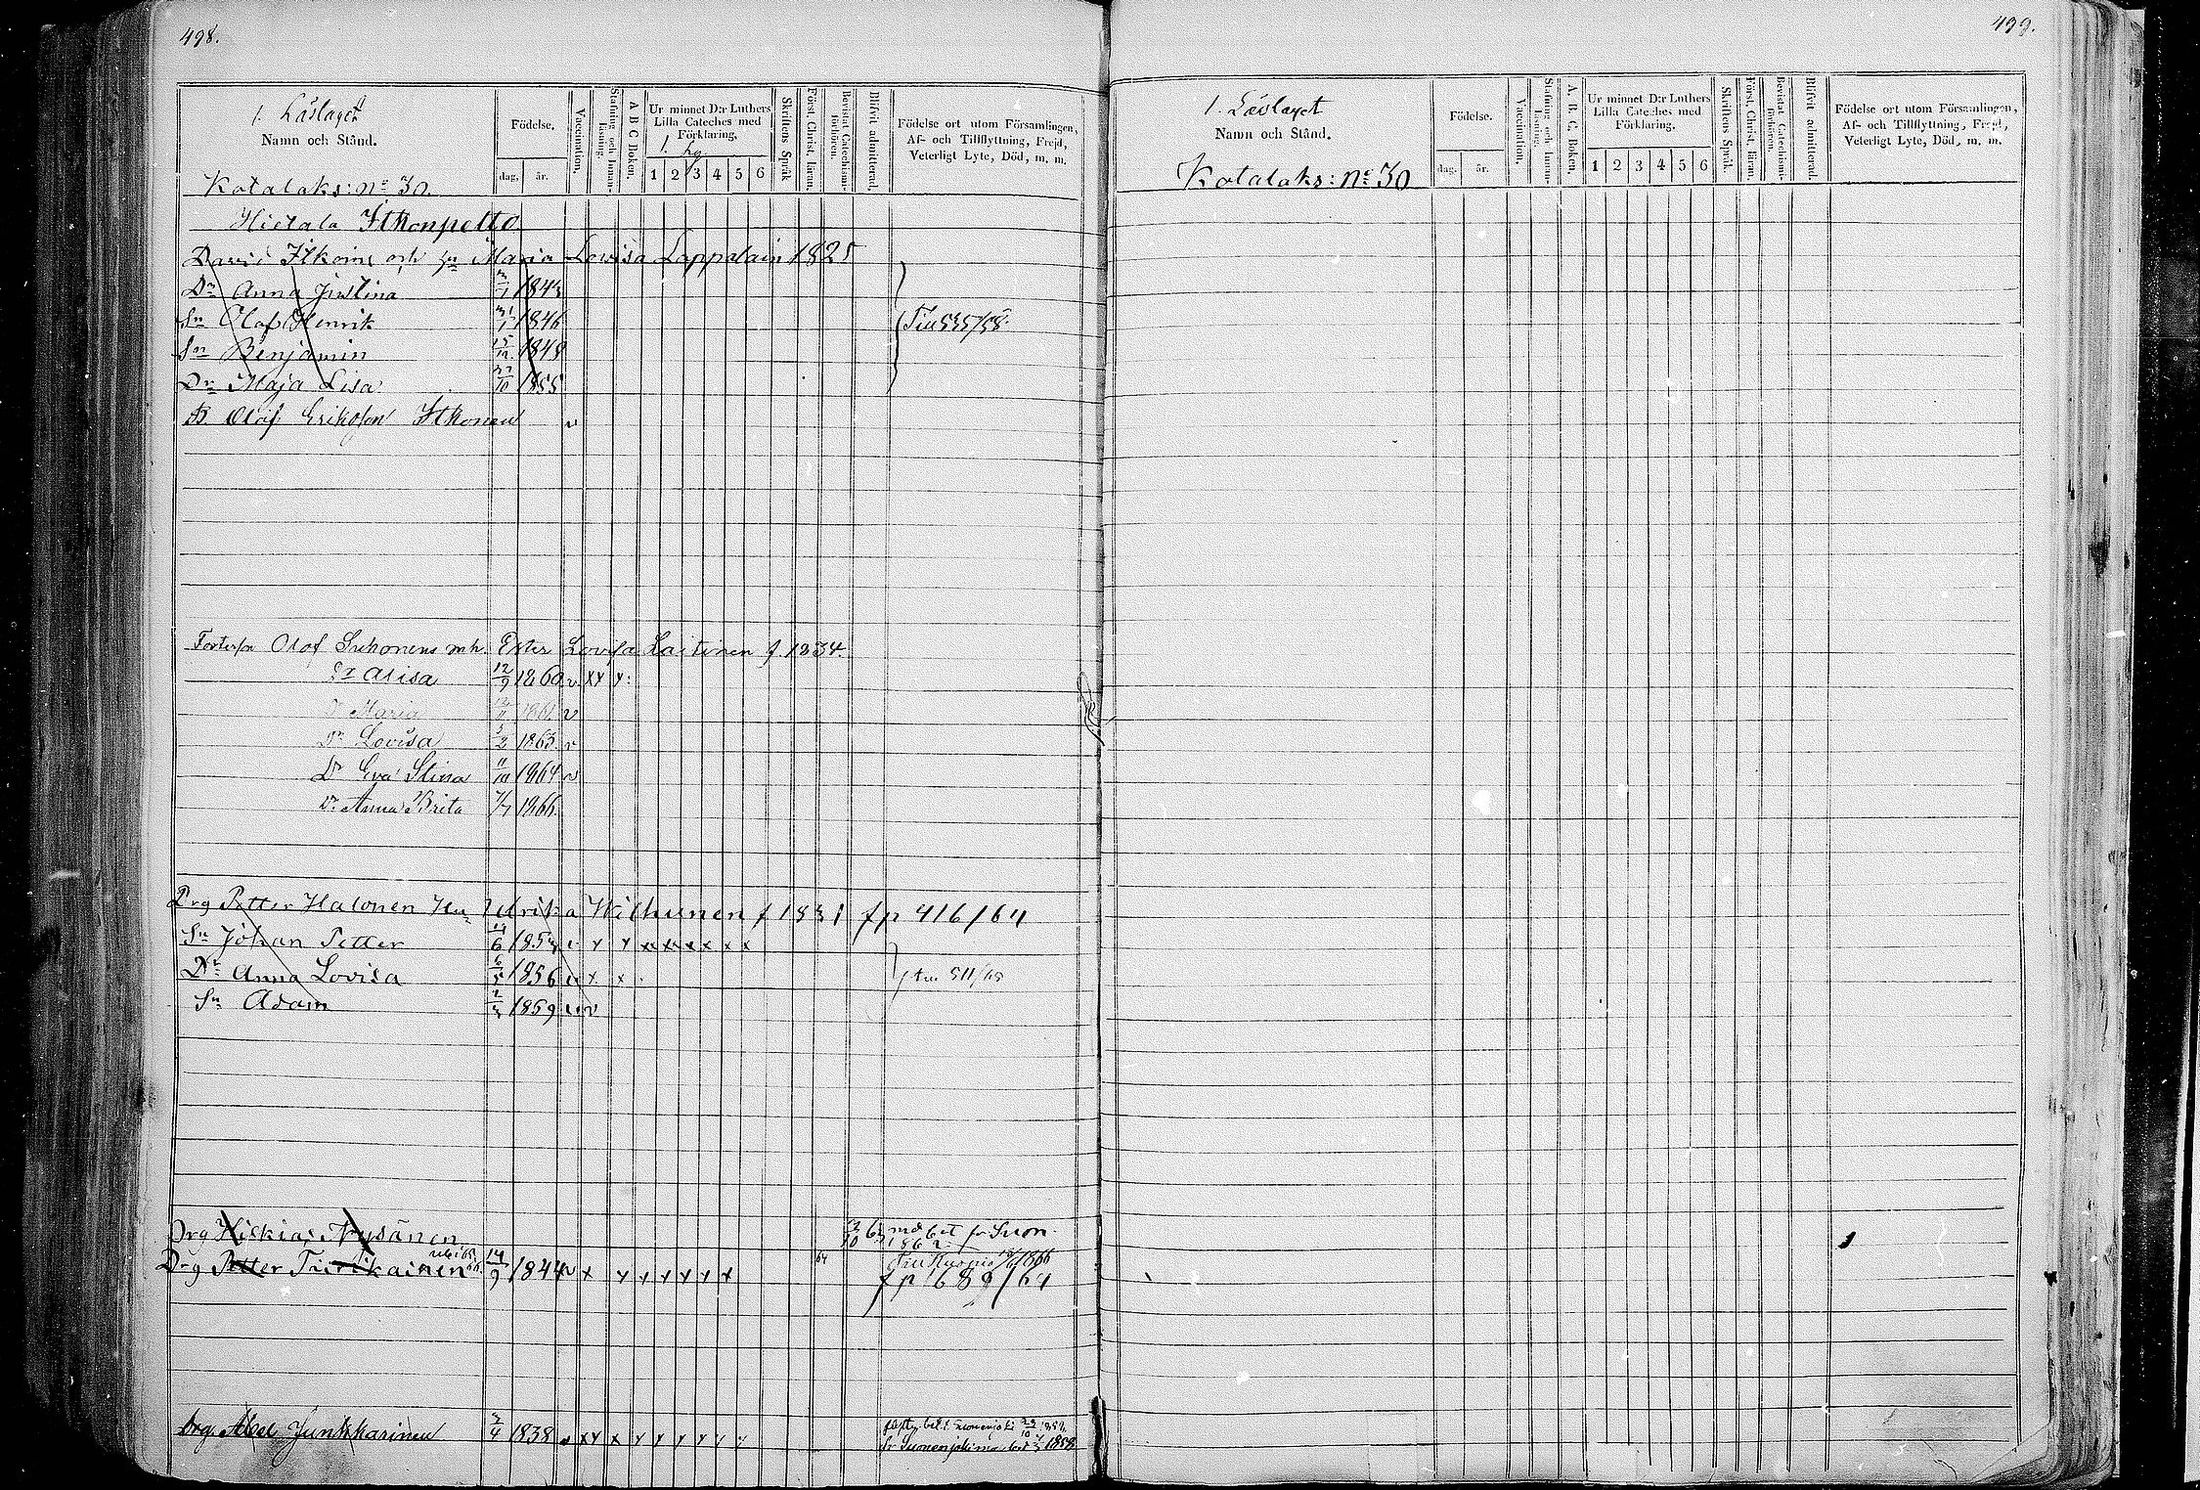 498.
1. Läslaget
Namn och Stånd.
Kotalaks: No 30.
Födelse.
dag. år.
Vaccination.
Stafning och Innan-läsning.
A B C Boken.
Ur minnet D:r Luthers Lilla Cateches med Förklaring.
1 2 3 4 5 6
Skriftens Språk
Först. Christ. läran.
Bevistat Catechismi-förhören.
Blifvit admitterad.
Födelse ort utom Församlingen, Af- och Tillflyttning, Frejd, Veterligt Lyte, Död, m. m.
Hietala Itkonpelto
David Itkoins och hu Maria Lovisa Lappalain 1825
Dr Anna Justina 1843
Sn Olof Henrik 31/1 1846
Sn Benjamin 15/12 1848
Dr Maja Lisa 10 1855
B. Olof Eriksson Itkonen v
Olof Suhonens mh. Ester Lovisa Laitinen f. 1834.
Dr Alisa 12/9 1860 v xy y
Dr Maria 1861 v
Dr Lovisa 5/2 1863 v
Dr Eva Stina 11/10 1864 v
Dr Anna Brita 7/7 1866
Drg Petter Halonen Hu Ulrika Wilhunen f 1831 fp 416/64
Sn Johan Petter 6 1853 v y y x x x x x x
Dr Anna Lovisa 6/5 1856 v x x
511/65
Sn Adam 2/3 1859 v v
Drg Hiskias Nysänen
3/10 62 md bet fr Suon. 1862
Drg Petter Tarikainen 14/9 1844 v x y y y y y x 64
1866
fp 689/64
Drg Abel Junkkarinen 3/4 1838 v xy x y y y y y
Suonenjoki 1858
499.
1. Läslaget
Namn och Stånd.
Kotalaks: No 30
Födelse.
dag. år.
Vaccination.
Stafning och Innan-läsning.
A. B. C. Boken.
Ur minnet D:r Luthers Lilla Cateches med Förklaring.
1 2 3 4 5 6
Skriftens Språk.
Först. Christ. läran.
Bevistat Catechismi-förhören.
Blifvit admitterad.
Födelse ort utom Församlingen, Af- och Tillflyttning, Frejd, Veterligt Lyte, Död, m. m.